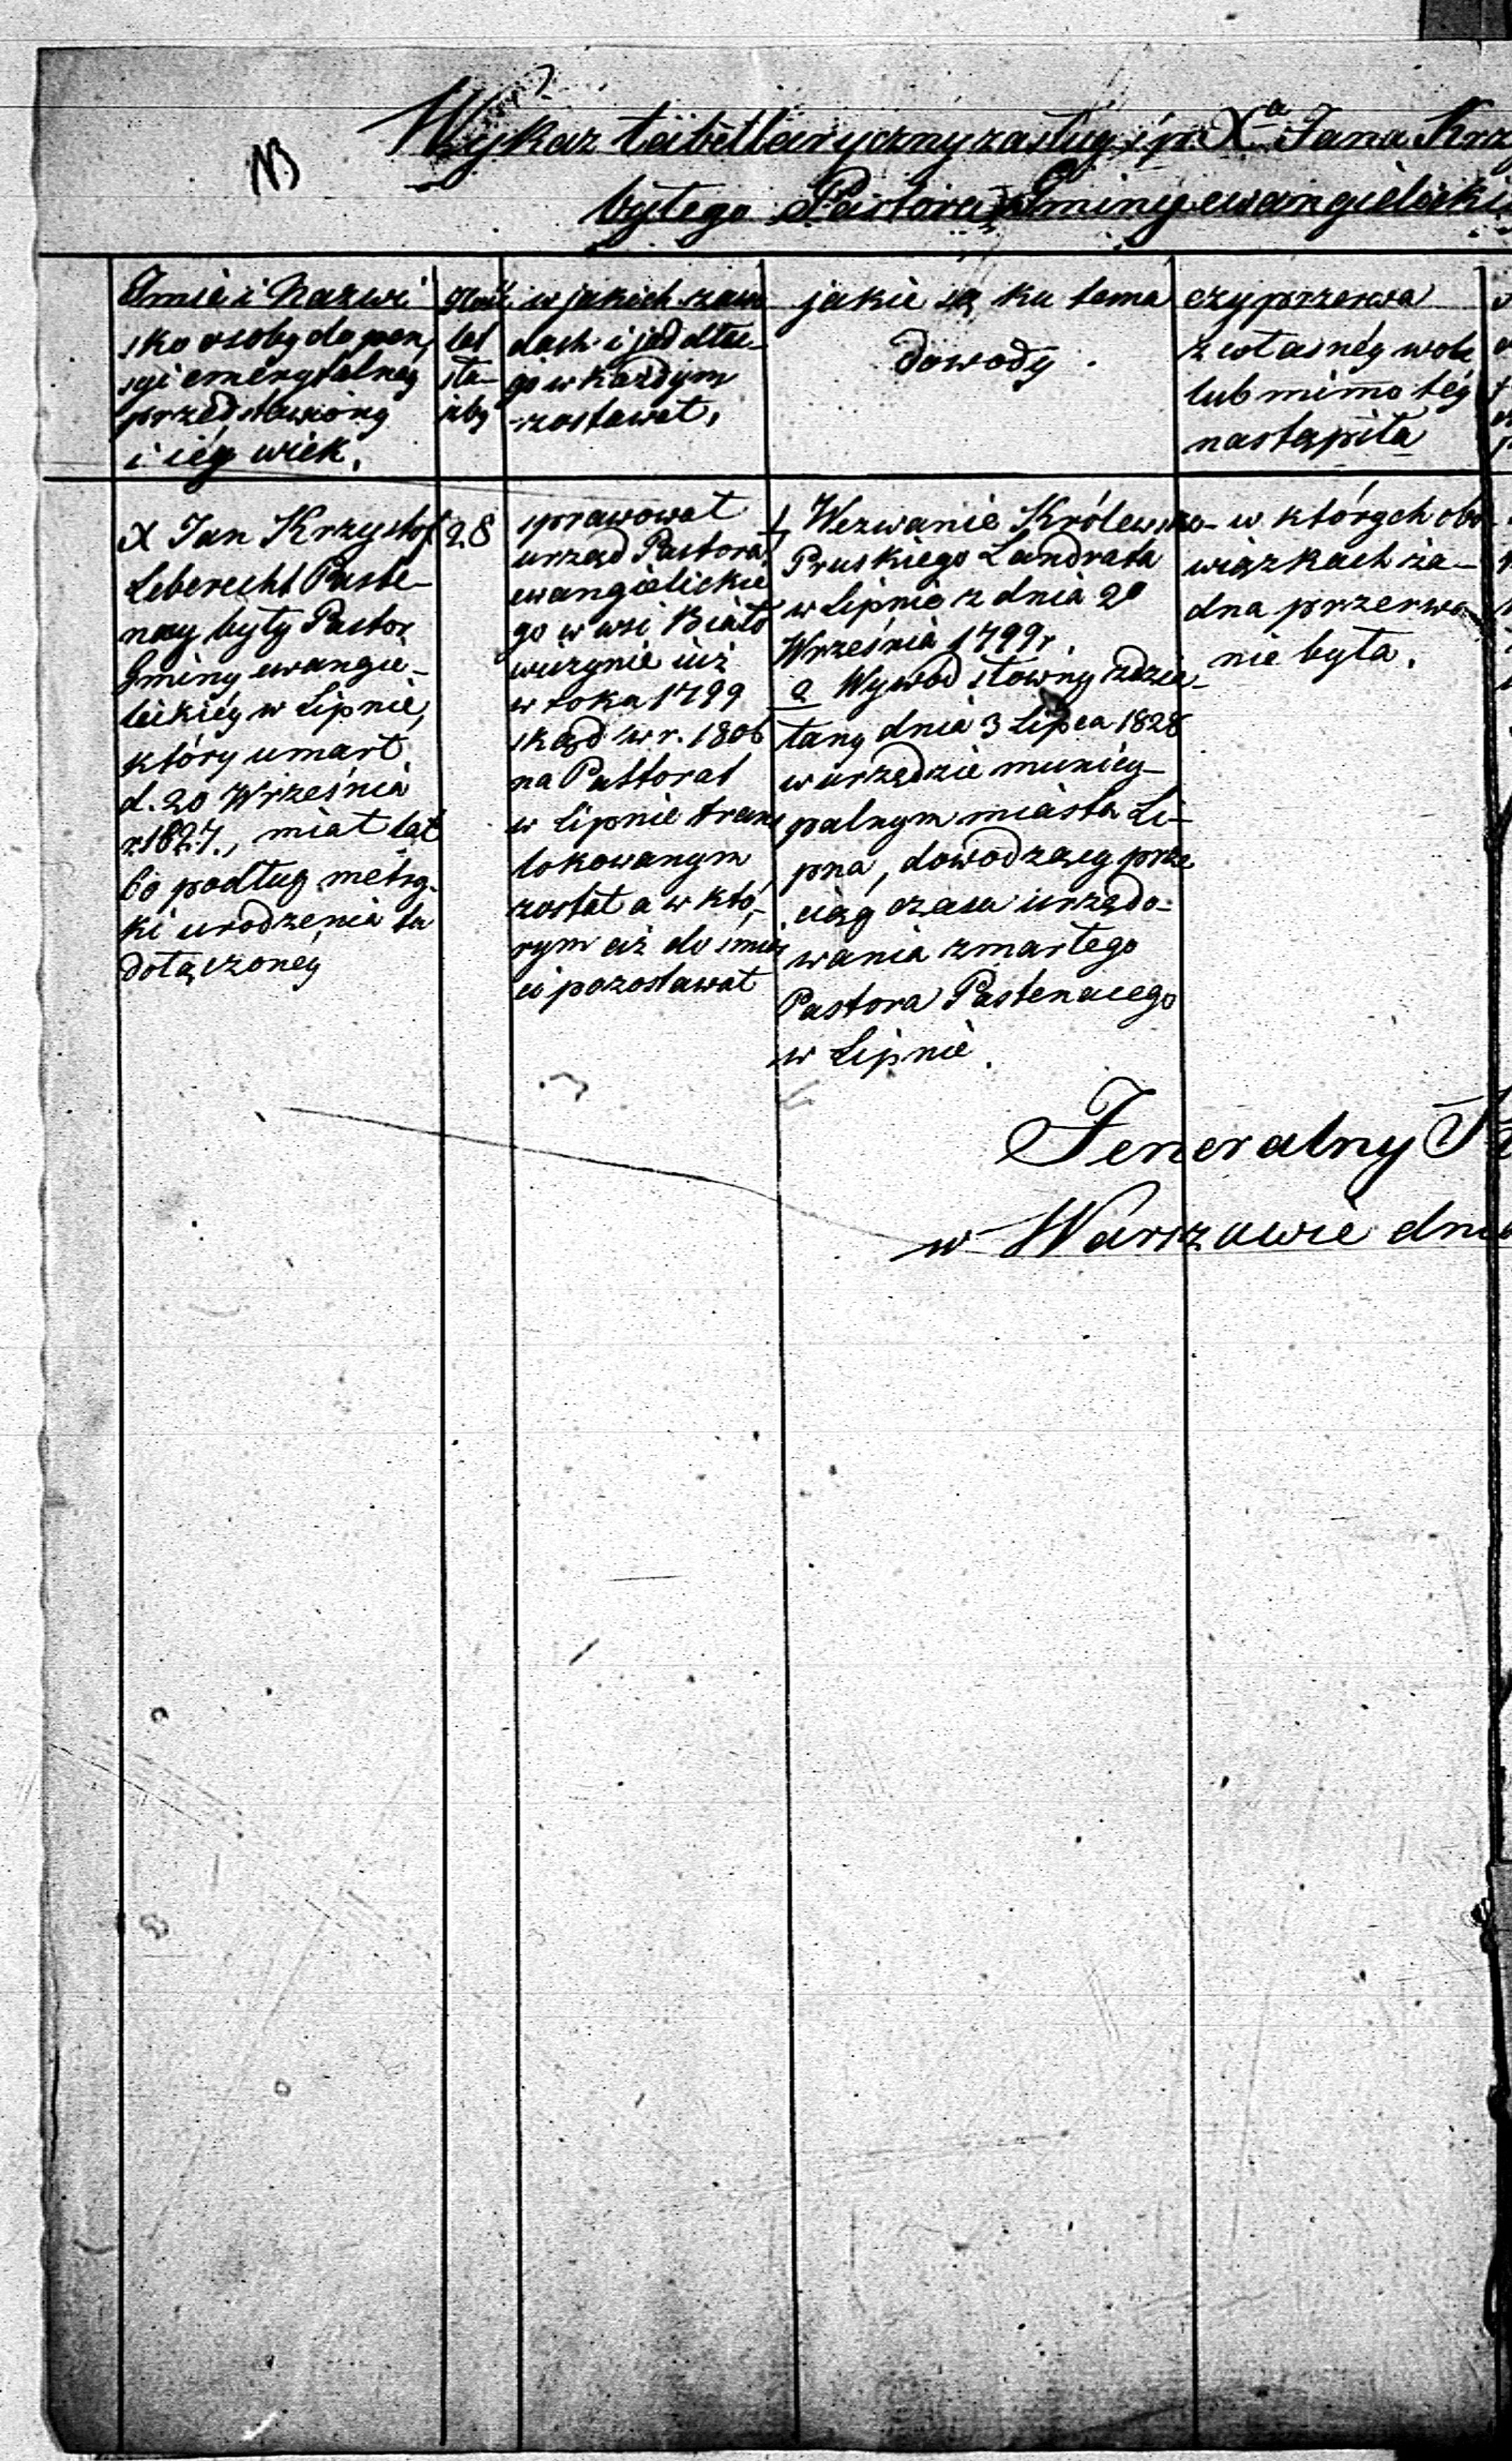 NB
Wykaz tabellaryczny zasług ś p. Xa Jana Krz
byłego Pastora Gminy ewangielicki
Imie i Nazwi
sko osoby do pen
syi emerytalney
przedstawioney
i iéy wiek.
Ilość
lat
słu-
żby
w jakich zawo
dach i jak dłu-
go w każdym
zostawał,
jakie są ku temu
dowody.
czy przerwa
z własnéy woli
lub mimo téy
nastąpiła
X Jan Krzysztof
Leberecht Paste-
nacy były Pastor
Gminy ewangie-
lickiéy w Lipnie,
który umarł
d. 20 Września
r 1827., miał lat
60 podług metry-
ki urodzenia tu
dołączoney
28
sprawował
urząd Pastora
ewangielickie
go w wsi Biało
wieżynie iuż
w roku 1799
skąd w r. 1806
na Pastorat
w Lipnie trans
lokowanym
został a w któ-
rym aż do śmier
ci pozostawał
1 Wezwanie Królewsko-
Pruskiego Landrata
w Lipnie z dnia 20
Września 1799 r.
2 Wywód słowny zdzia-
łany dnia 3 Lipca 1828
w urzędzie municy-
palnym miasta Li-
pna, dowodzący prze
ciąg czasu urzędo-
wania zmarłego
Pastora Pastenacego
w Lipnie.
w których obo-
wiązkach ża-
dna przerwa
nie była.
Jeneralny
w Warszawie dnia